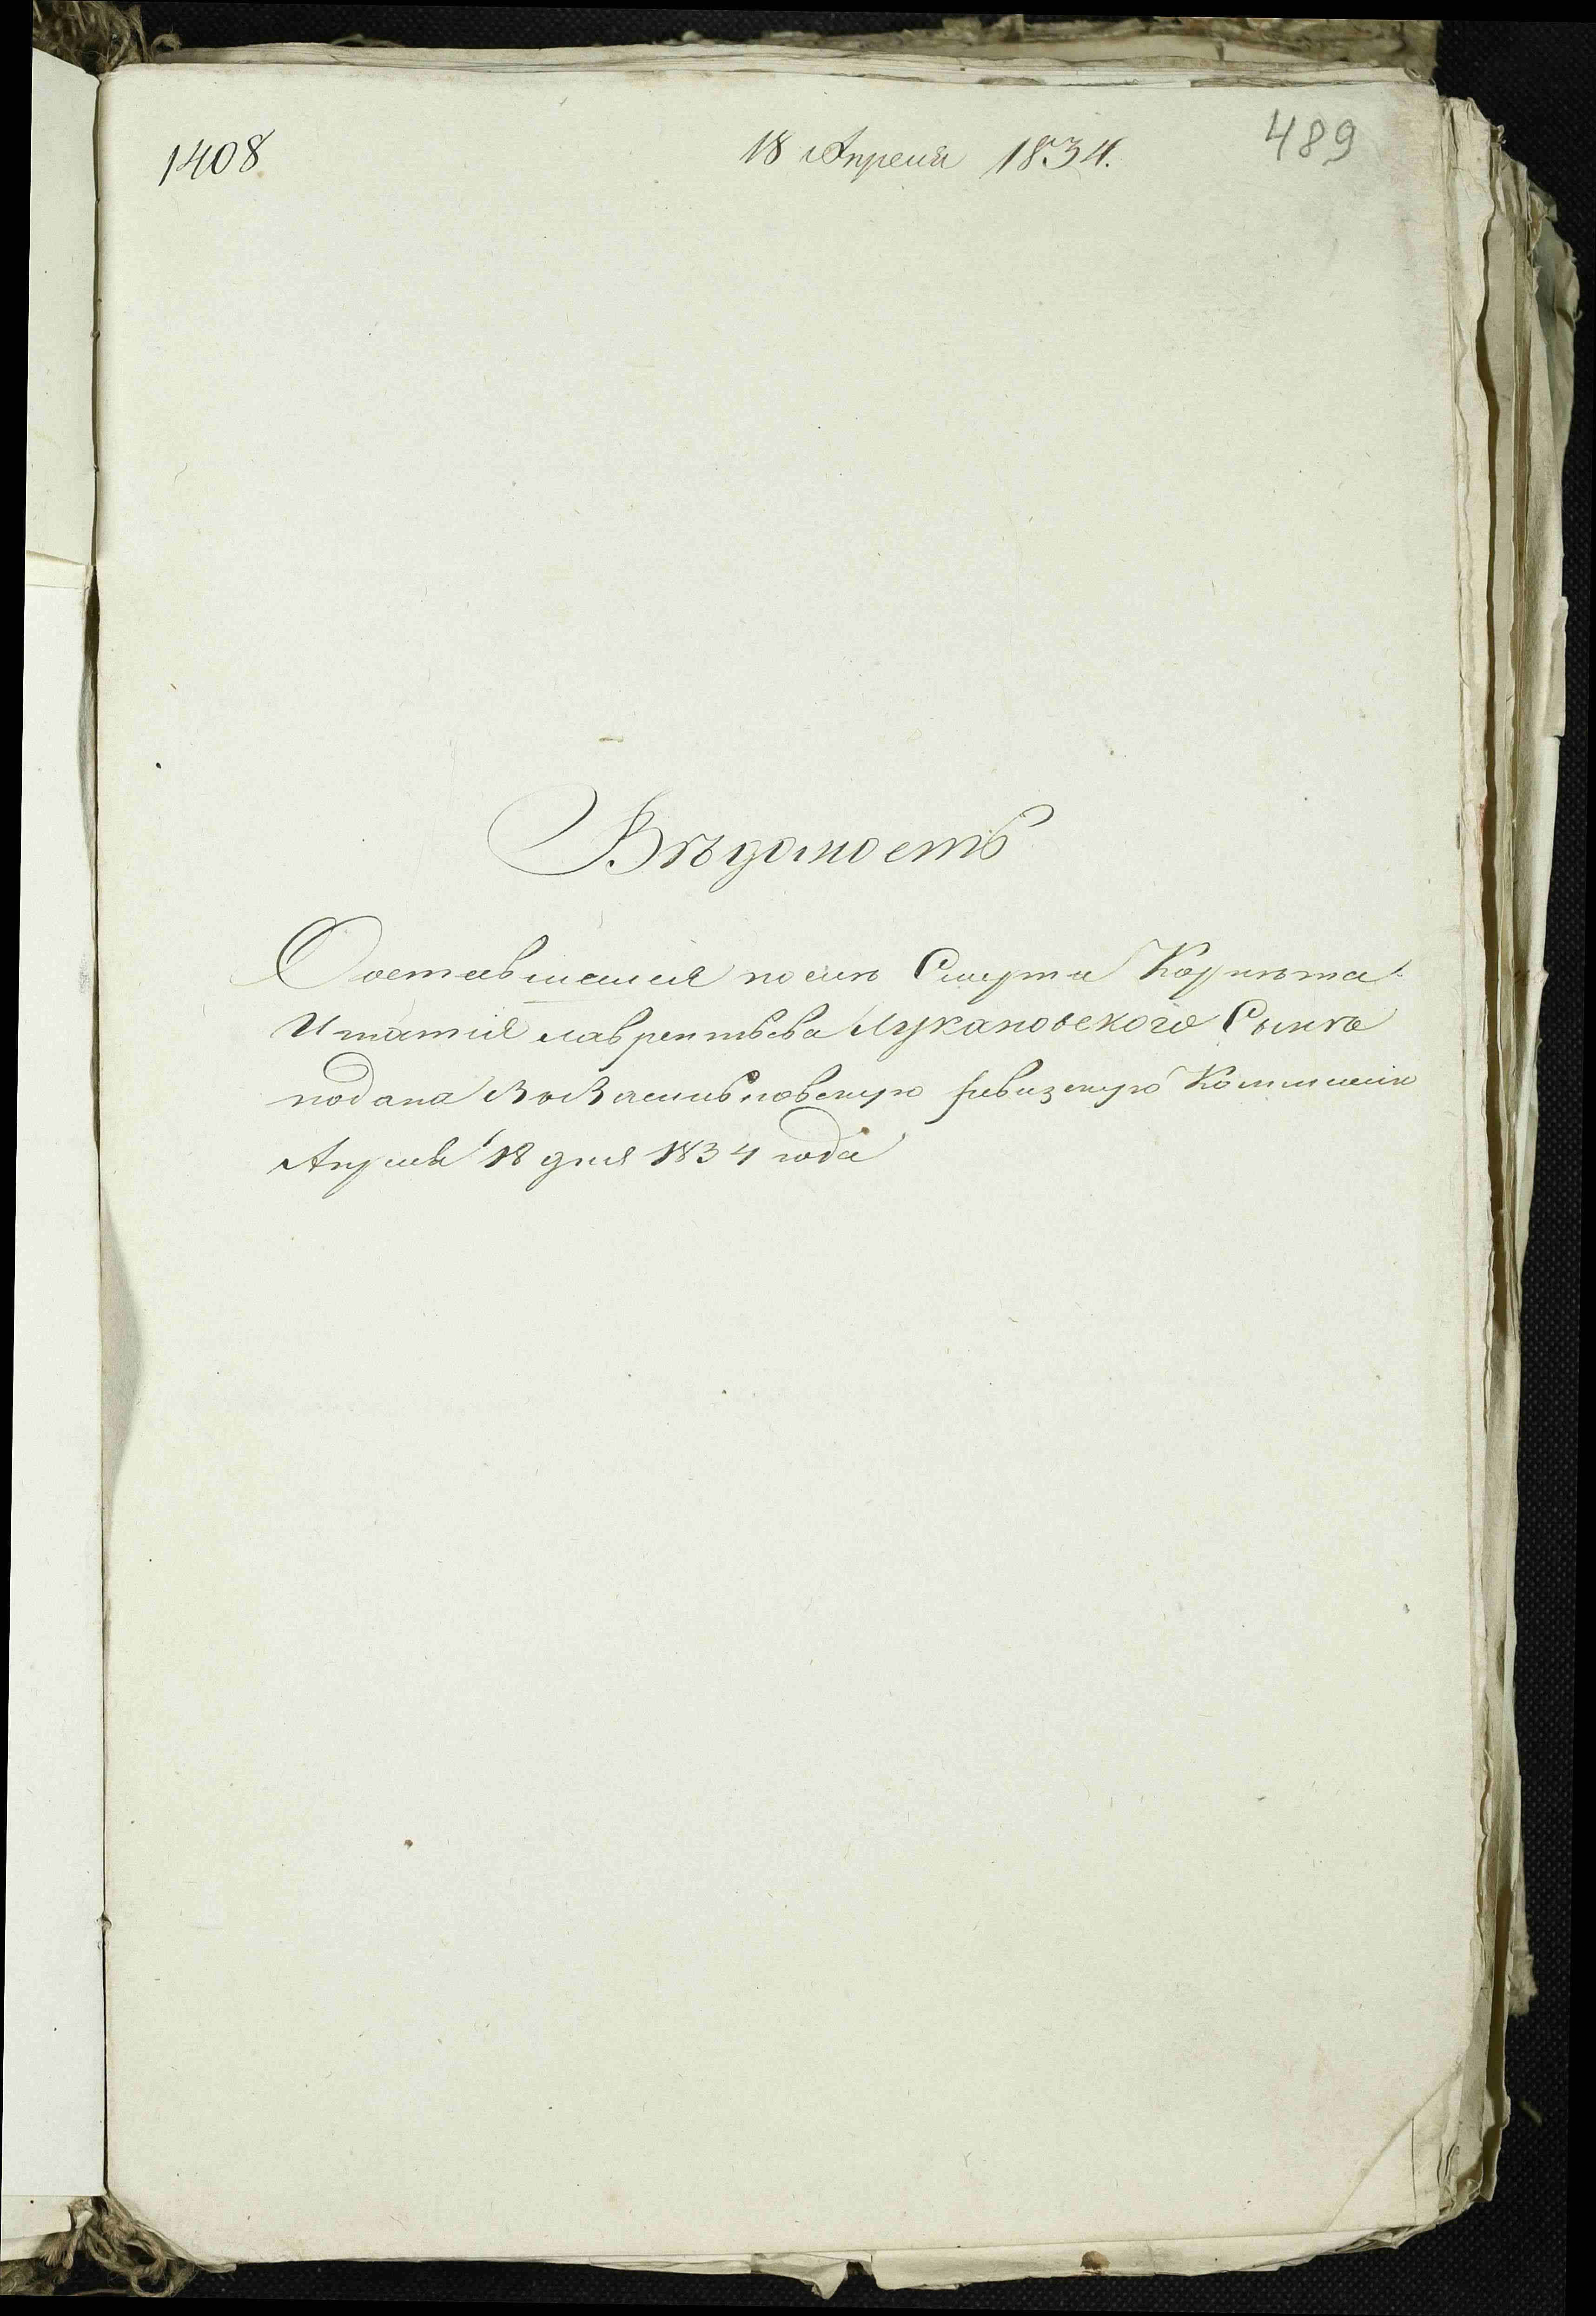 1408
18 Апреля 1834.
489
Вѣдомость
О оставшемся послѣ Смерти Корнета
Игнатія лаврентьева Лукановского Сынѣ
подана Во Васильковскую ревизскую Коммисию
Апреля 18 дня 1834 года